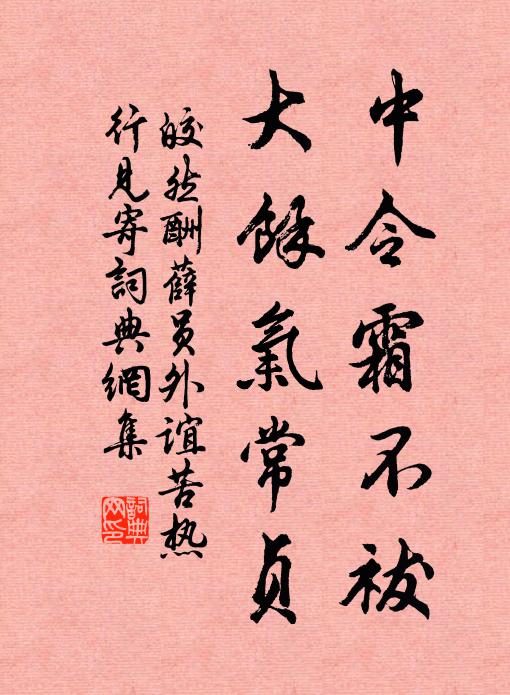 中令霜不祓
大餘氣常貞
皎然酬薛員外誼苦热
行見寄詞典網集
詞典网印